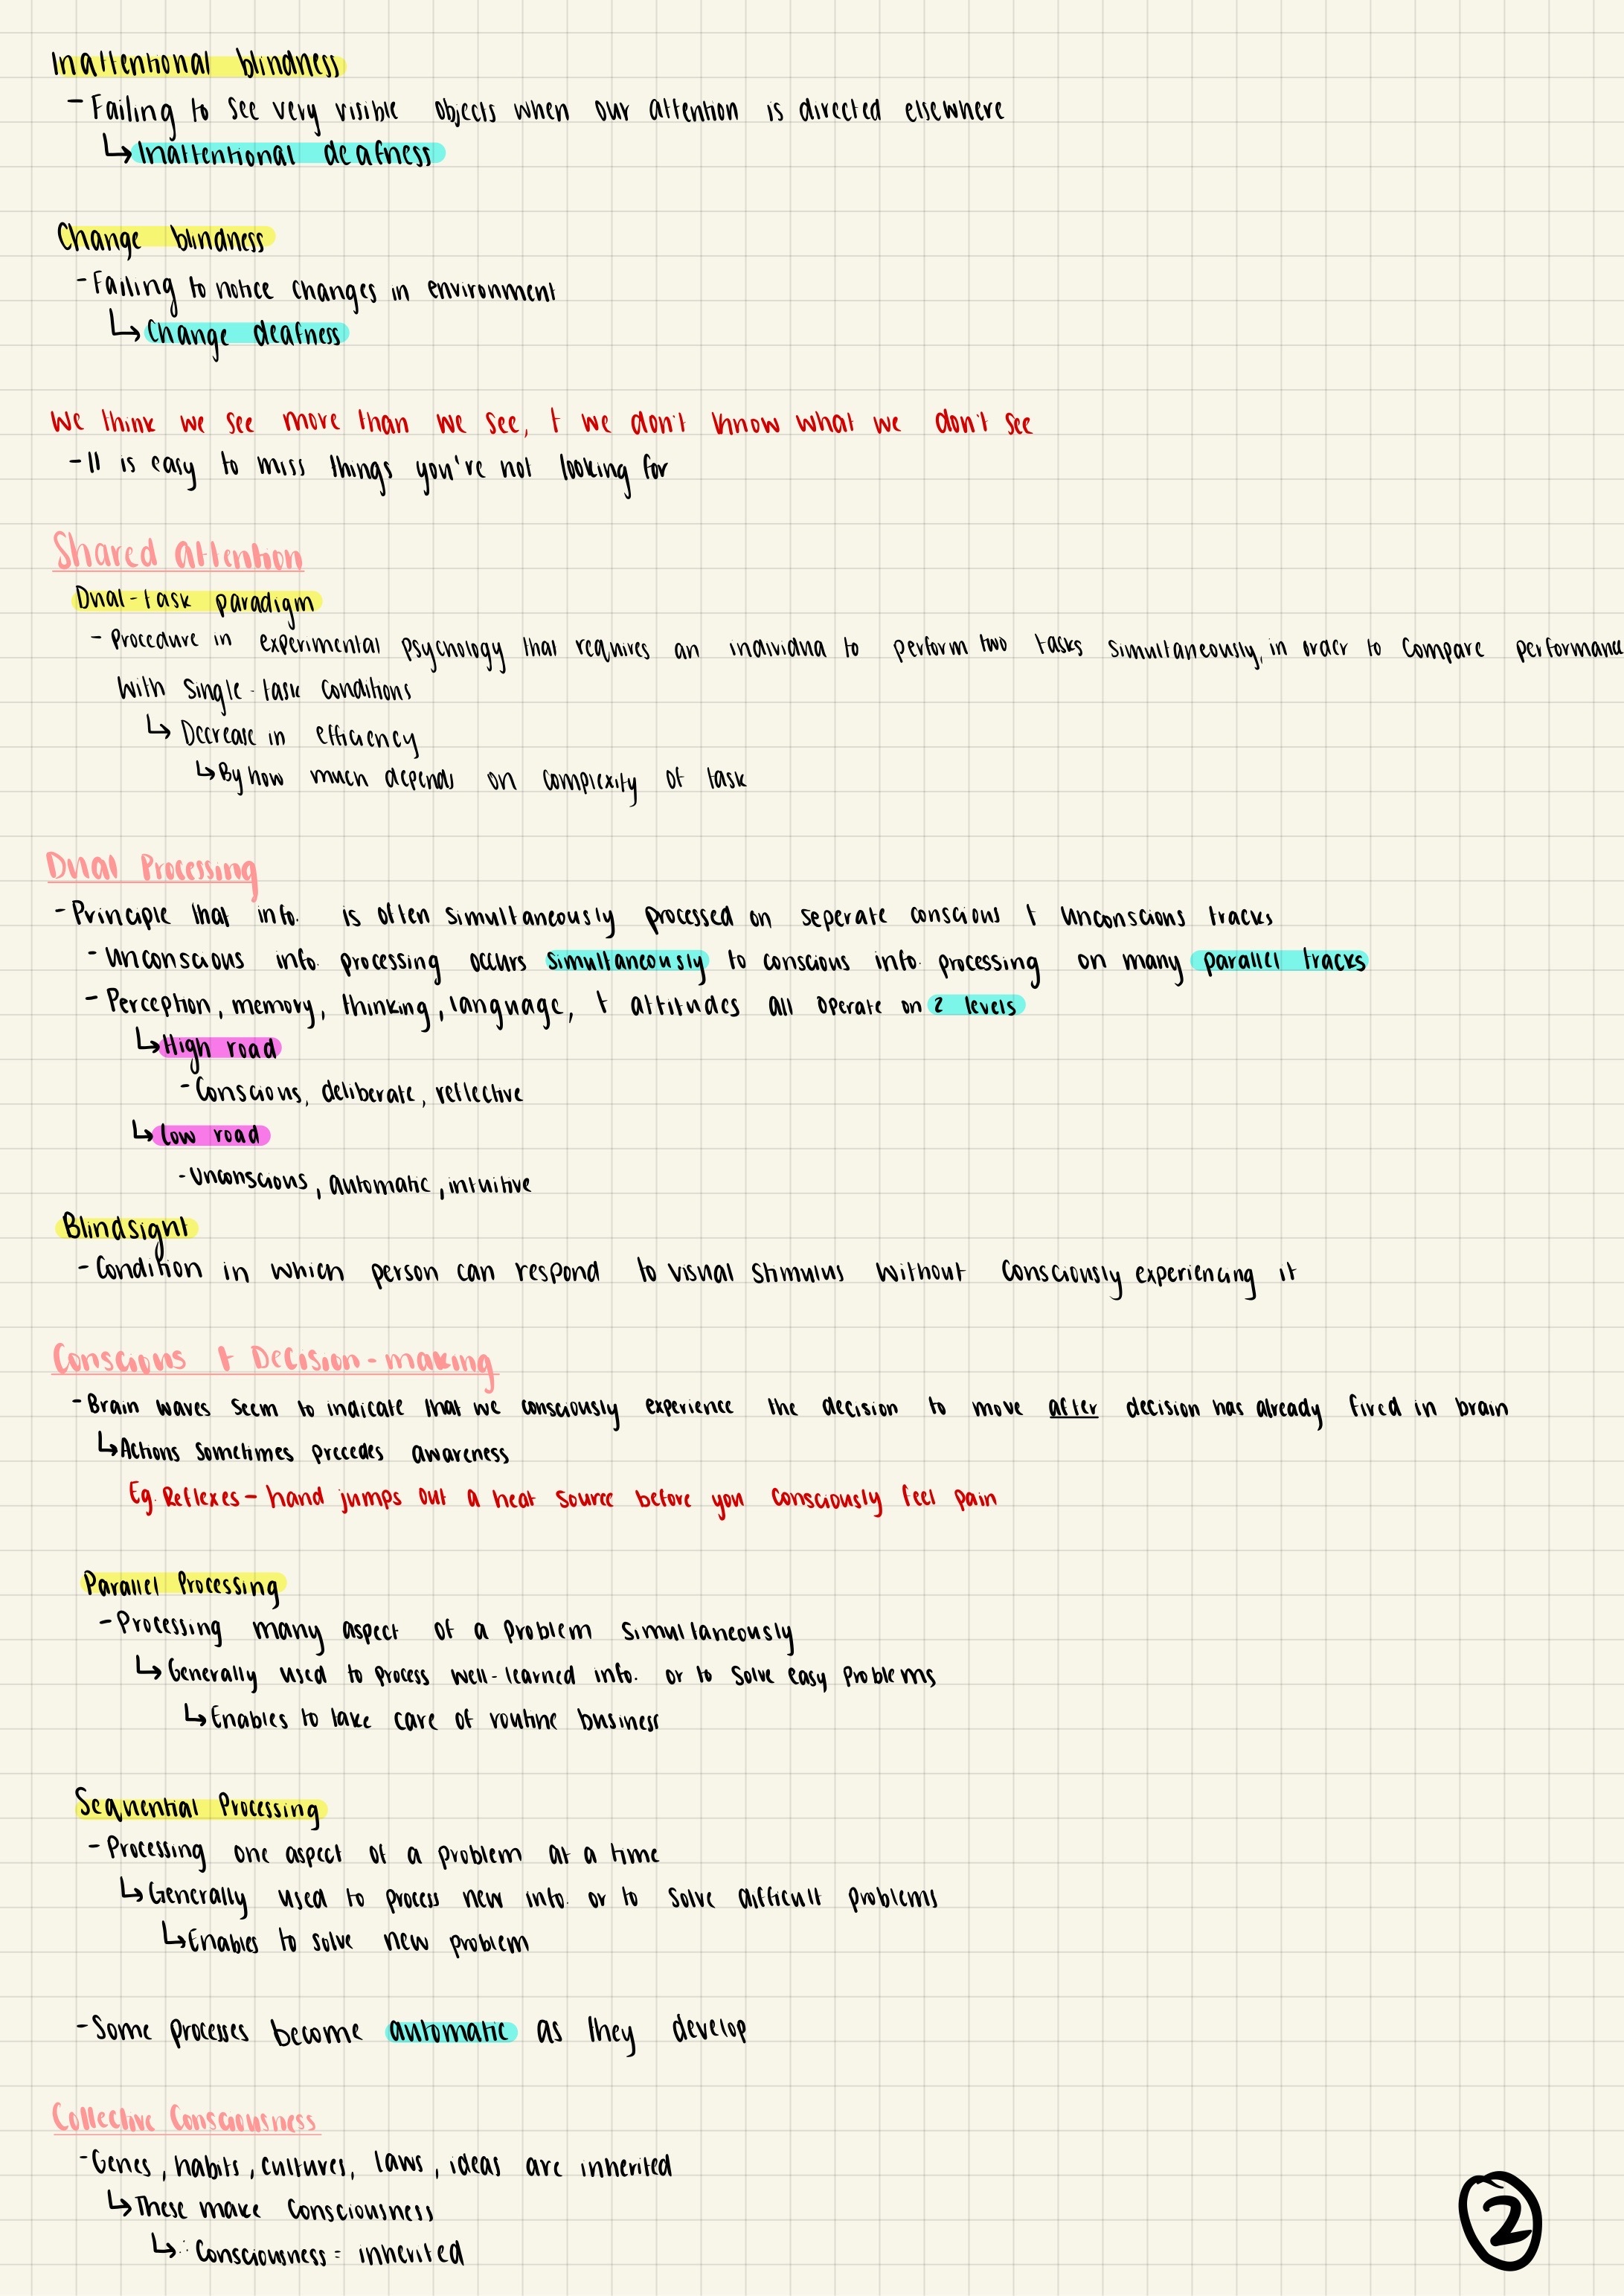 Inattentional blindness
- Failing to see very visible objects when our attention is directed elsewhere
↳ Inattentional deafness
Change blindness
- Failing to notice changes in environment
↳ Change deafness
We think we see more than we see, + we don't know what we don't see
- It is easy to miss things you're not looking for
Shared Attention
Dual-task paradigm
- Procedure in experimental psychology that requires an individua to perform two tasks simultaneously, in order to compare performance
with single-task conditions
↳ Decrease in efficiency
↳ By how much depends on complexity of task
Dual Processing
- Principle that info. is often simultaneously processed on seperate conscious + unconscious tracks
- Unconscious info. processing occurs simultaneously to conscious info. processing on many parallel tracks
- Perception, memory, thinking, language, + attitudes all operate on 2 levels
↳ High road
- Conscious, deliberate, reflective
↳ Low road
- Unconscious, automatic, intuitive
Blindsight
- Condition in which person can respond to visual stimulus without consciously experiencing it
Conscious + Decision-making
- Brain waves seem to indicate that we consciously experience the decision to move after decision has already fired in brain
↳ Actions sometimes precedes awareness
Eg. Reflexes - hand jumps out a heat source before you consciously feel pain
Parallel Processing
- Processing many aspect of a problem simultaneously
↳ Generally used to process well-learned info. or to solve easy problems
↳ Enables to take care of routine business
Sequential Processing
- Processing one aspect of a problem at a time
↳ Generally used to process new info. or to solve difficult problems
↳ Enables to solve new problem
- Some processes become automatic as they develop
Collective Consciousness
- Genes, habits, cultures, laws, ideas are inherited
↳ These make consciousness
↳ ∴ Consciousness = inherited
2